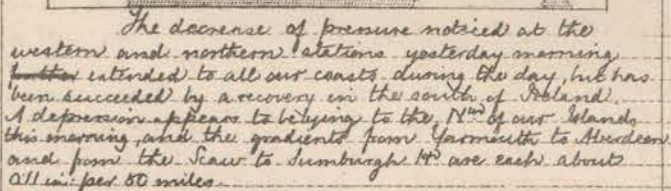 The decrease of pressure noticed at the
western and northern stations yesterday morning
extended to all our coasts during the day, but has
been succeeded by a recovery in the south of Ireland.
A depression appears to be lying to the N'wd of our Islands
this morning, and the gradients from Yarmouth to Aberdeen
and from the Scaw to Sumburgh Hd are each about
0.11 in: per 50 miles.